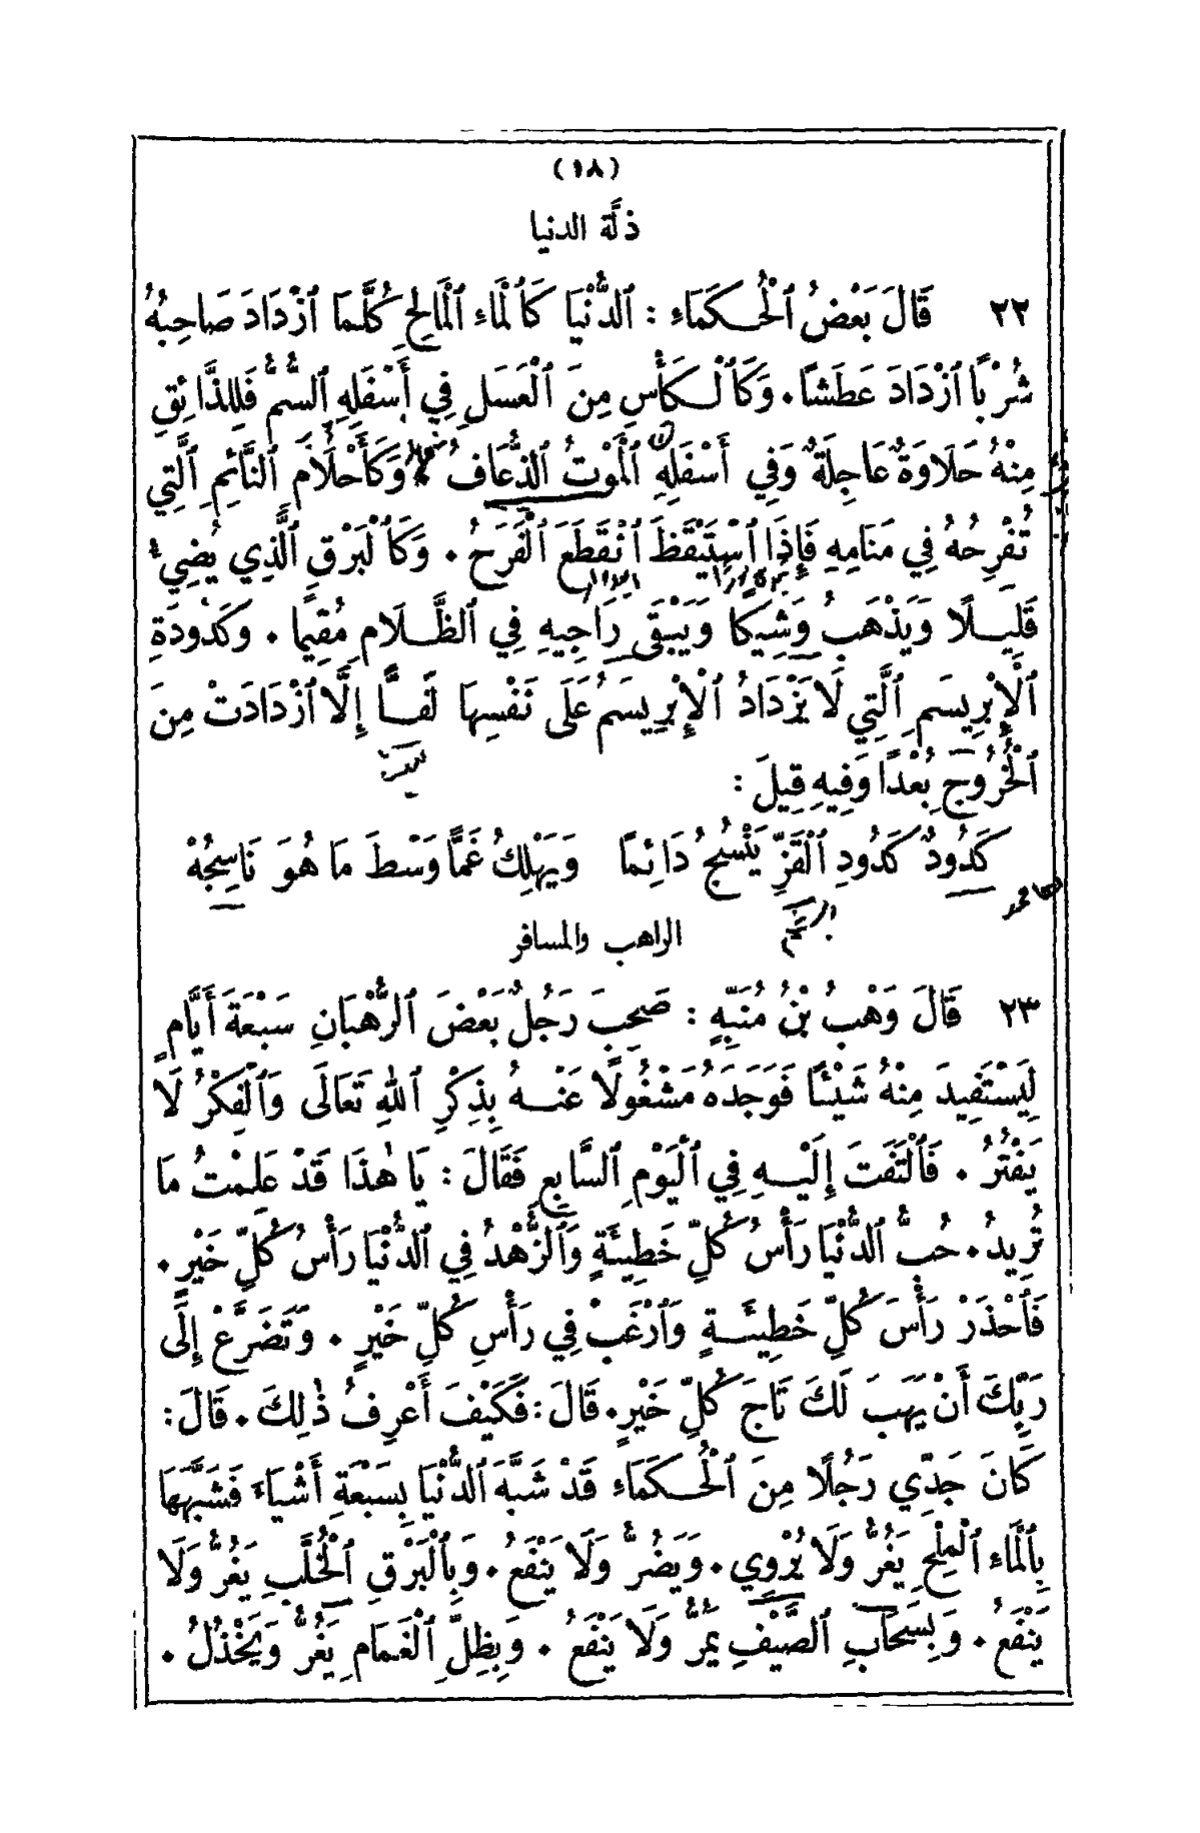 (١٨)
ذلَّة الدنيا
٢٢ قَالَ بَعْضُ ٱلْحُكَمَاءِ : ٱلدُّنْيَا كَٱلْمَاءِ ٱلْمَالِحِ كُلَّمَا ٱزْدَادَ صَاحِبُهُ
شُرْبًا ٱزْدَادَ عَطَشًا . وَكَٱلْكَأْسِ مِنَ ٱلْعَسَلِ فِي أَسْفَلِهِ ٱلسُّمُّ فَلِلذَّائِقِ
مِنْهُ حَلَاوَةٌ عَاجِلَةٌ وَفِي أَسْفَلِهِ ٱلْمَوْتُ ٱلذُّعَافُ . وَكَأَحْلَامِ ٱلنَّائِمِ ٱلَّتِي
تُفْرِحُهُ فِي مَنَامِهِ فَإِذَا ٱسْتَيْقَظَ ٱنْقَطَعَ ٱلْفَرَحُ . وَكَٱلْبَرْقِ ٱلَّذِي يُضِيءُ
قَلِيلًا وَيَذْهَبُ وَشِيكًا وَيَبْقَى رَاجِيهِ فِي ٱلظَّلَامِ مُقِيمًا . وَكَدُودَةِ
ٱلْإِبْرِيسَمِ ٱلَّتِي لَا يَزْدَادُ ٱلْإِبْرِيسَمُ عَلَى نَفْسِهَا لَفًّا إِلَّا ٱزْدَادَتْ مِنَ
ٱلْخُرُوجِ بُعْدًا وَفِيهِ قِيلَ :
كَدُودٌ كَدُودِ ٱلْقَزِّ يَنْسُجُ دَائِمًا وَيَهْلِكُ غَمًّا وَسْطَ مَا هُوَ نَاسِجُهْ
الراهب والمسافر
٢٣ قَالَ وَهْبُ بْنُ مُنَبِّهٍ : صَحِبَ رَجُلٌ بَعْضَ ٱلرُّهْبَانِ سَبْعَةَ أَيَّامٍ
لِيَسْتَفِيدَ مِنْهُ شَيْئًا فَوَجَدَهُ مَشْغُولًا عَنْهُ بِذِكْرِ ٱللهِ تَعَالَى وَٱلْفِكْرُ لَا
يَفْتُرُ . فَٱلْتَفَتَ إِلَيْهِ فِي ٱلْيَوْمِ ٱلسَّابِعِ فَقَالَ : يَا هٰذَا قَدْ عَلِمْتُ مَا
تُرِيدُ . حُبُّ ٱلدُّنْيَا رَأْسُ كُلِّ خَطِيئَةٍ وَٱلزُّهْدُ فِي ٱلدُّنْيَا رَأْسُ كُلِّ خَيْرٍ .
فَٱحْذَرْ رَأْسَ كُلِّ خَطِيئَةٍ وَٱرْغَبْ فِي رَأْسِ كُلِّ خَيْرٍ . وَتَضَرَّعْ إِلَى
رَبِّكَ أَنْ يَهَبَ لَكَ تَاجَ كُلِّ خَيْرٍ . قَالَ : فَكَيْفَ أَعْرِفُ ذٰلِكَ . قَالَ :
كَانَ جَدِّي رَجُلًا مِنَ ٱلْحُكَمَاءِ قَدْ شَبَّهَ ٱلدُّنْيَا بِسَبْعَةِ أَشْيَاءَ فَشَبَّهَهَا
بِٱلْمَاءِ ٱلْمِلْحِ يَغُرُّ وَلَا يُرْوِي . وَيَضُرُّ وَلَا يَنْفَعُ . وَبِٱلْبَرْقِ ٱلْخُلَّبِ يَغُرُّ وَلَا
يَنْفَعُ . وَبِسَحَابِ ٱلصَّيْفِ يَمُرُّ وَلَا يَنْفَعُ . وَبِظِلِّ ٱلْغَمَامِ يَغُرُّ وَيَخْذُلُ .